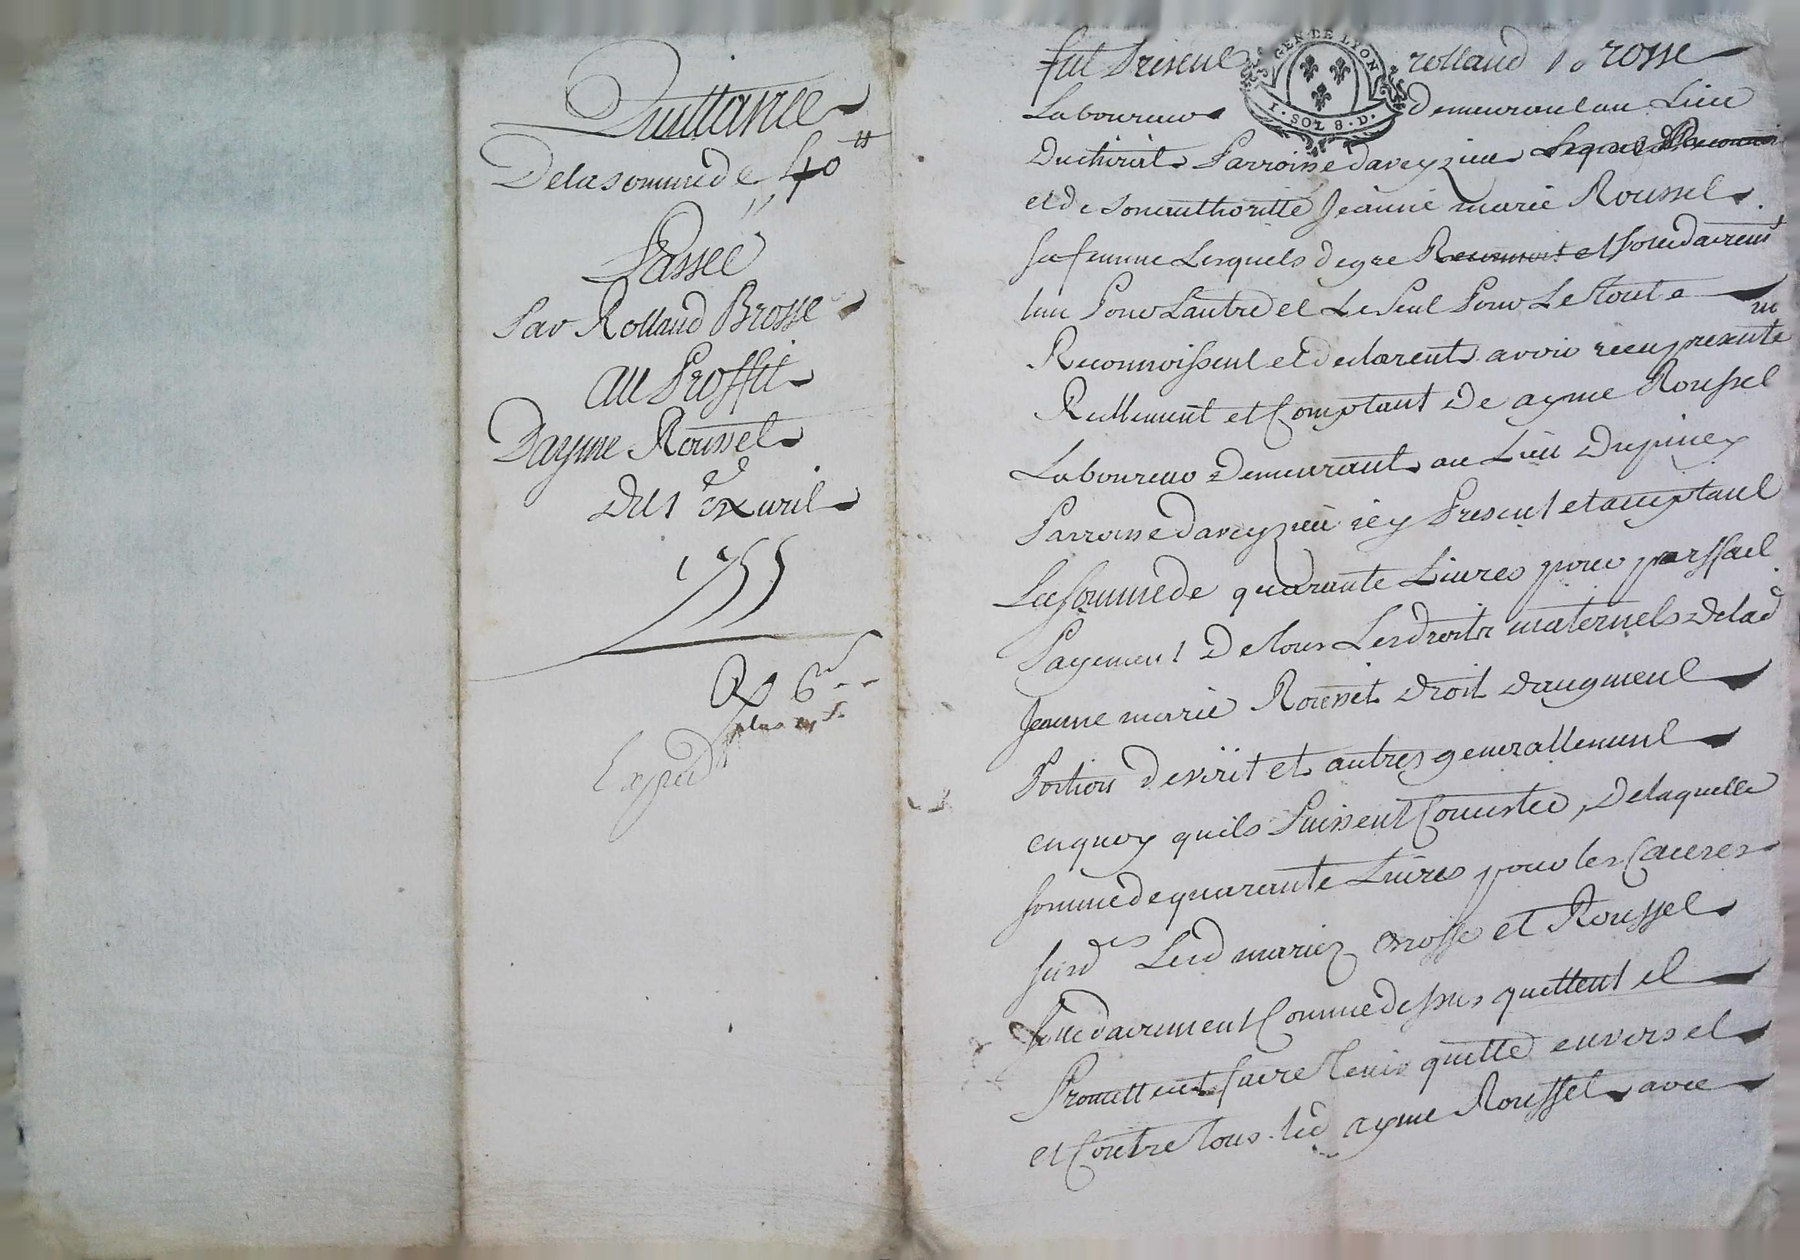 Quittance
De la somme de 40 ₶
Passee
Par Rolland Brosse
au Proffit
Dayme Roussel
Du 1er avril
1755
6 s
plus
Exped
GEN DE LYON
1. SOL 8. D.
fut Present rolland brosse
Laboureur demeurant au Lieu
Du chirat Parroisse daveyzieu
et de son authoritté Jeanne marie Roussel
sa femme Lesquels de gre Reconnoit et solidairemt
lun Pour Lautre et Le seul Pour Le toute
Reconnoissent et declarent avoir receu presente
Reellement et Comptant De ayme Roussel
Laboureur Demeurant au Lieu Dupiney
Parroisse daveyzieu icy Present et acceptant
La somme de quarante Livres pour parffait
Payement De tous Les droits maternels De lad
Jeanne marie Roussel droit daugment
Portion de virit et autres generallement
en quoy quils Puissent Concister, De laquelle
somme de quarante Livres pour les Causes
susdes Lesd mariez Brosse et Roussel
solidairement Comme dessus quittent et
Promettent faire tenir quitte envers et
et Contre tous led ayme Roussel avec